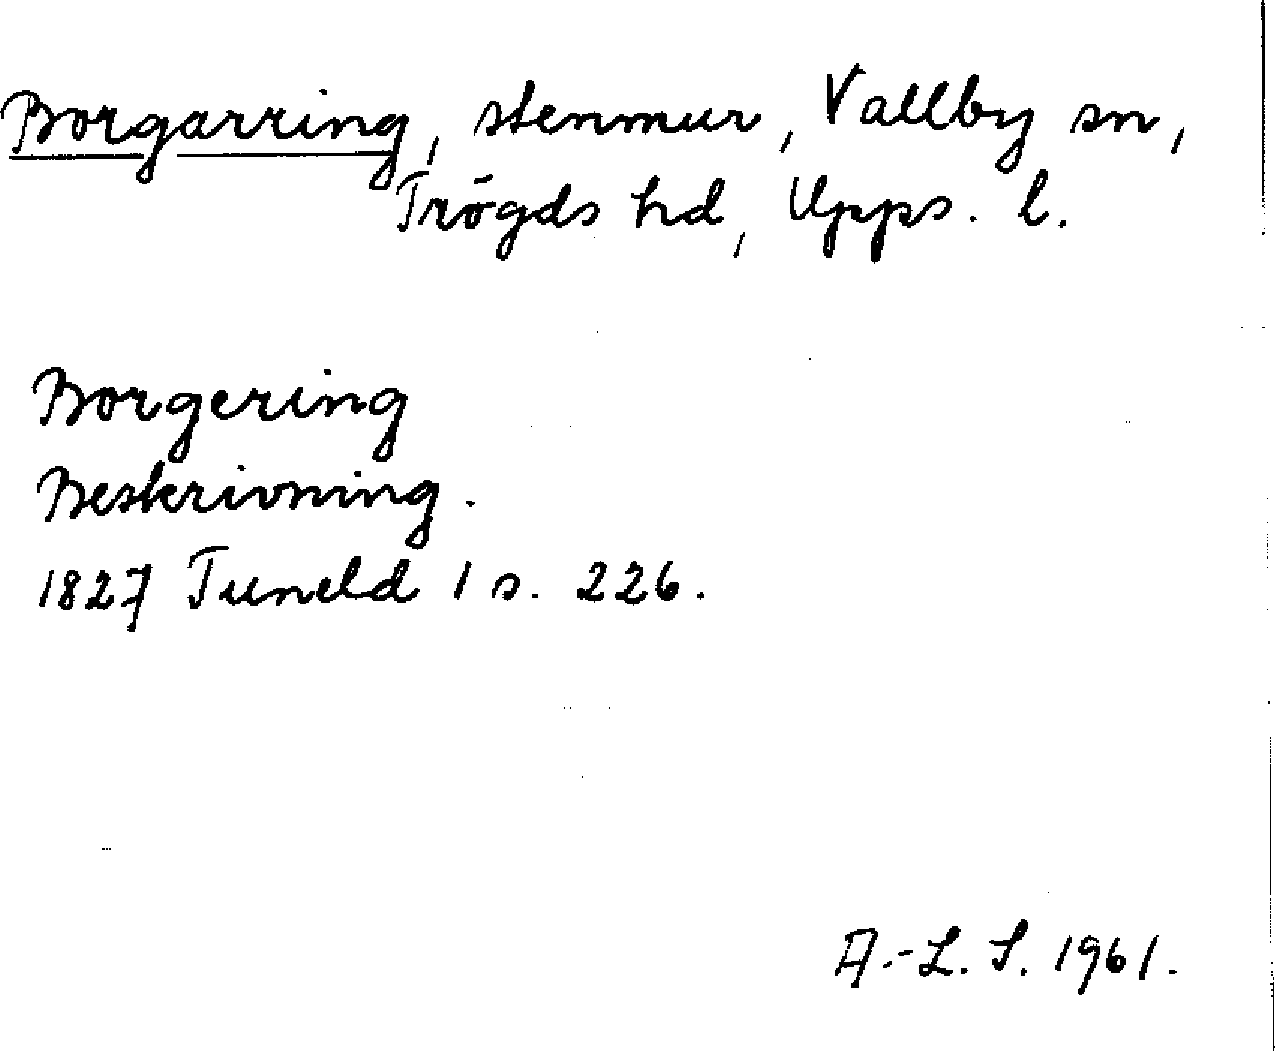 Borgarring, stenmur, Vallby sn,
Trögds hd, Upps. l.
Borgering
Beskrivning.
1827 Tuneld 1 s. 226.
A.-L. S. 1961.